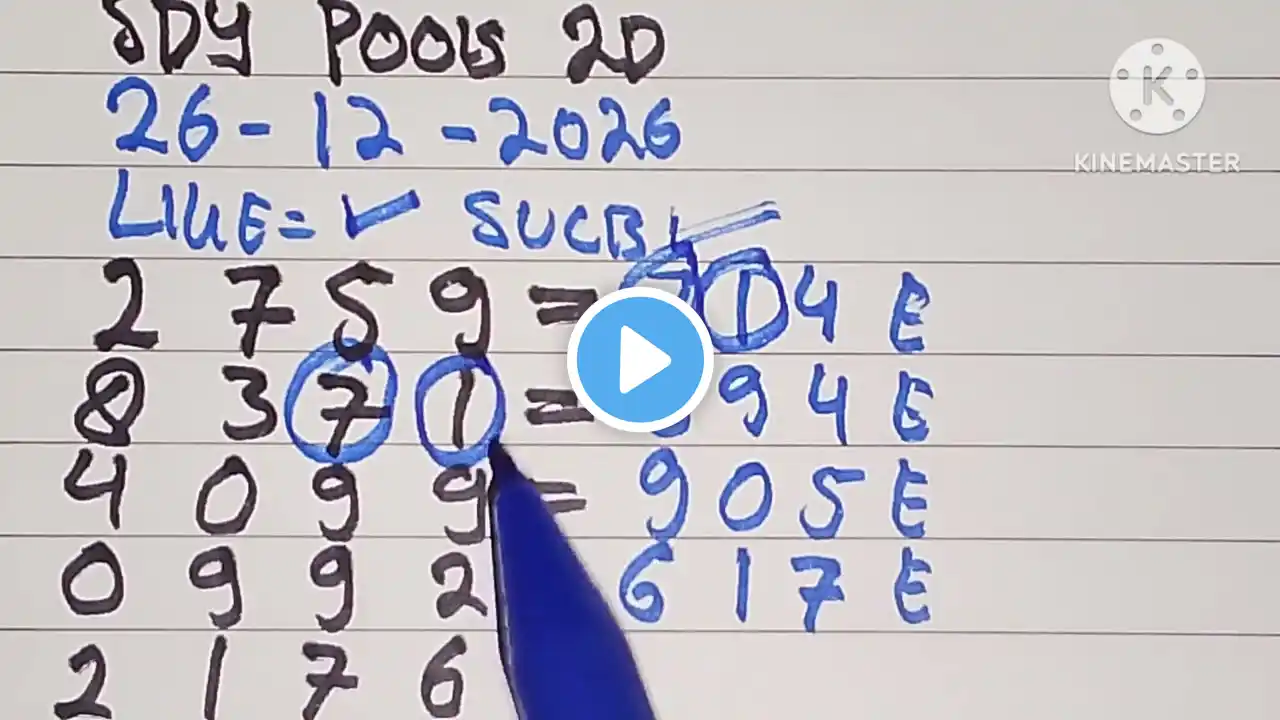 SDY POOLS 2D
26-12-2026
KINEMASTER
LIKE= ✓ SUCB
2 7 5 9 = 7 1 4 E
8 3 7 1 = 9 4 E
4 0 9 9 = 9 0 5 E
0 9 9 2 6 1 7 E
2 1 7 6